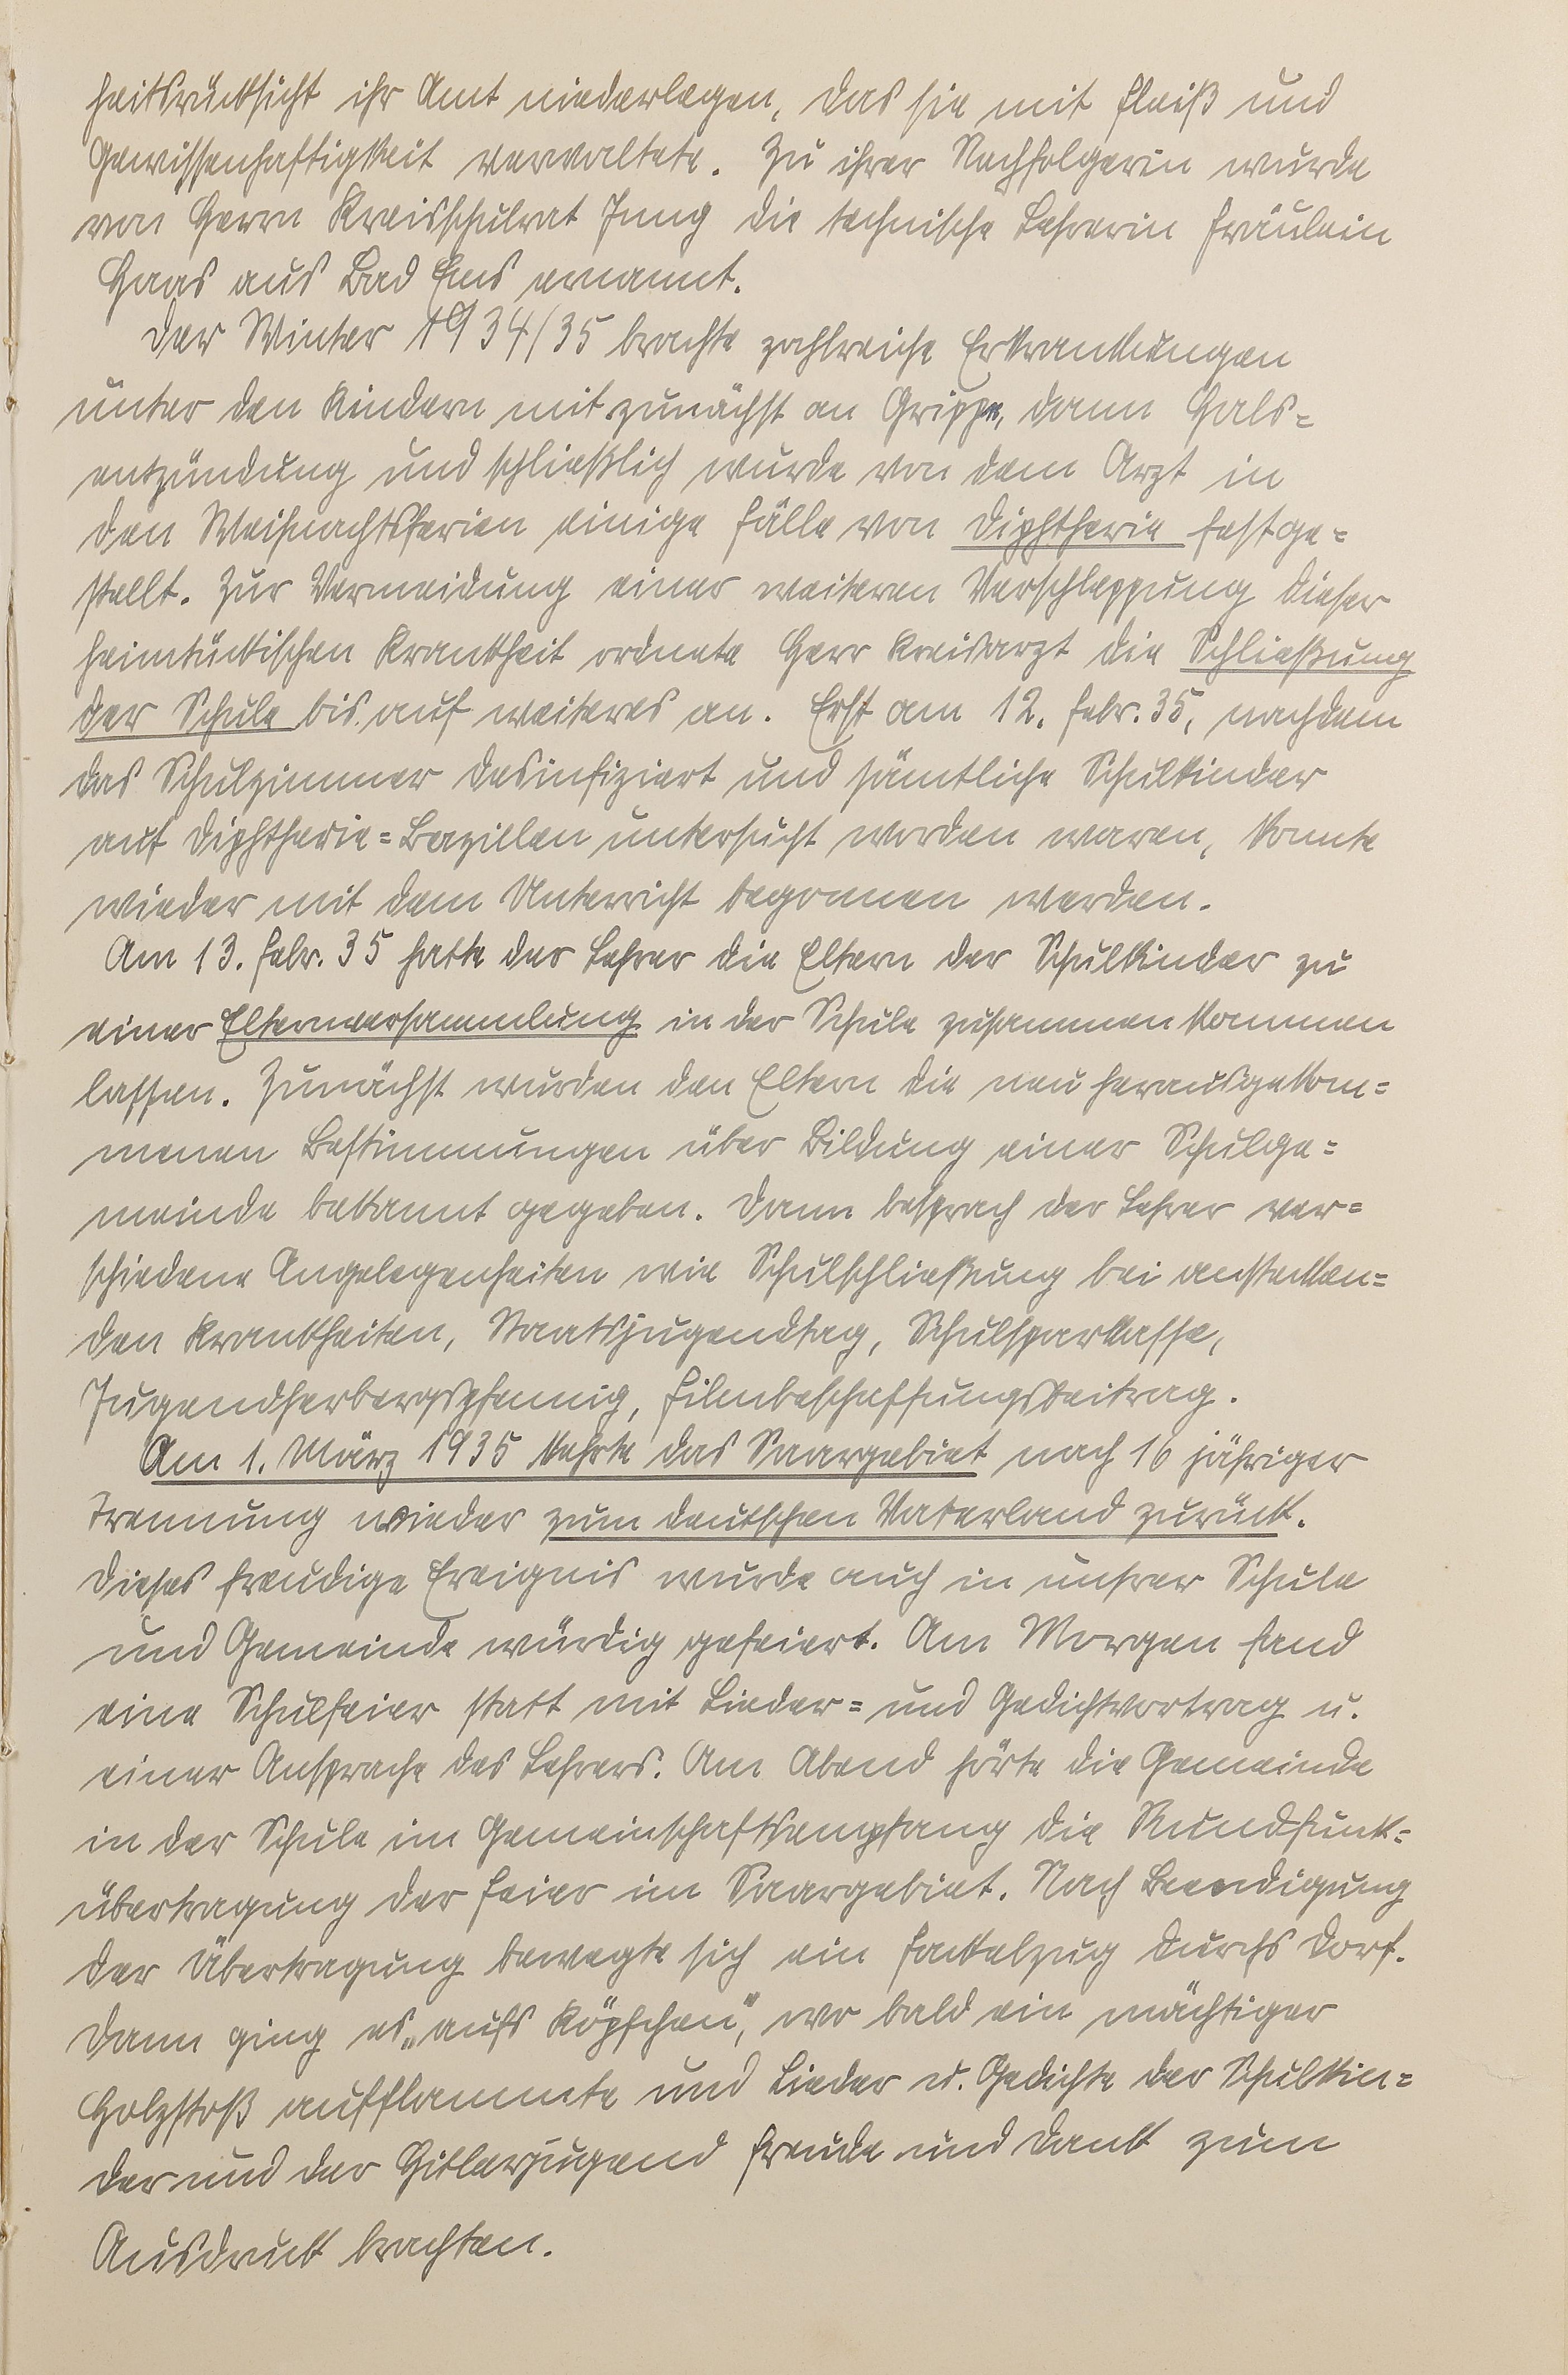 heitsrücksicht ihr Amt niederlegen, das sie mit Fleiß und
Gewissenhaftigkeit verwaltete. Zu ihrer Nachfolgerin wurde
von Herrn Kreisschulrat Jung die technische Lehrerin Fräulein
Haas aus Bad Ems ernannt.
Der Winter 1934/35 brachte zahlreiche Erkrankungen
unter den Kindern mit zunächst an Grippe, dann Hals=
entzündung und schließlich wurde von dem Arzt in
den Weihnachtsferien einige Fälle von Diphtherie festge=
stellt. Zur Vermeidung einer weiteren Verschleppung dieser
heimtückischen Krankheit ordnete Herr Kreisarzt die Schließung
der Schule bis auf weiteres an. Erst am 12. Febr. 35, nachdem
das Schulzimmer desinfiziert und sämtliche Schulkinder
auf Diphtherie=Bazillen untersucht worden waren, konnte
wieder mit dem Unterricht begonnen werden.
Am 13. Febr. 35 hatte der Lehrer die Eltern der Schulkinder zu
einer Elternversammlung in der Schule zusammen kommen
lassen. Zunächst wurden den Eltern die neu herausgekom=
menen Bestimmungen über Bildung einer Schulge=
meinde bekannt gegeben. Dann besprach der Lehrer ver=
schiedene Angelegenheiten wie Schulschließung bei anstecken=
den Krankheiten, Staatsjugendtag, Schulsparkasse,
Jugendherbergspfennig, Filmbeschaffungsbeitrag.
Am 1. März 1935 kehrte das Saargebiet nach 16 jähriger
Trennung wieder zum deutschen Vaterland zurück.
Dieses freudige Ereignis wurde auch in unsrer Schule
und Gemeinde würdig gefeiert. Am Morgen fand
eine Schulfeier statt mit Lieder= und Gedichtvortrag u.
einer Ansprache des Lehrers. Am Abend hörte die Gemeinde
in der Schule im Gemeinschaftsempfang die Rundfunk=
übertragung der Feier im Saargebiet. Nach Beendigung
der Übertragung bewegte sich ein Fackelzug durchs Dorf.
Dann ging es „aufs Köpfchen“, wo bald ein mächtiger
Holzstoß aufflammte und Lieder u. Gedichte der Schulkin=
der und der Hitlerjugend Freude und Dank zum
Ausdruck brachten.